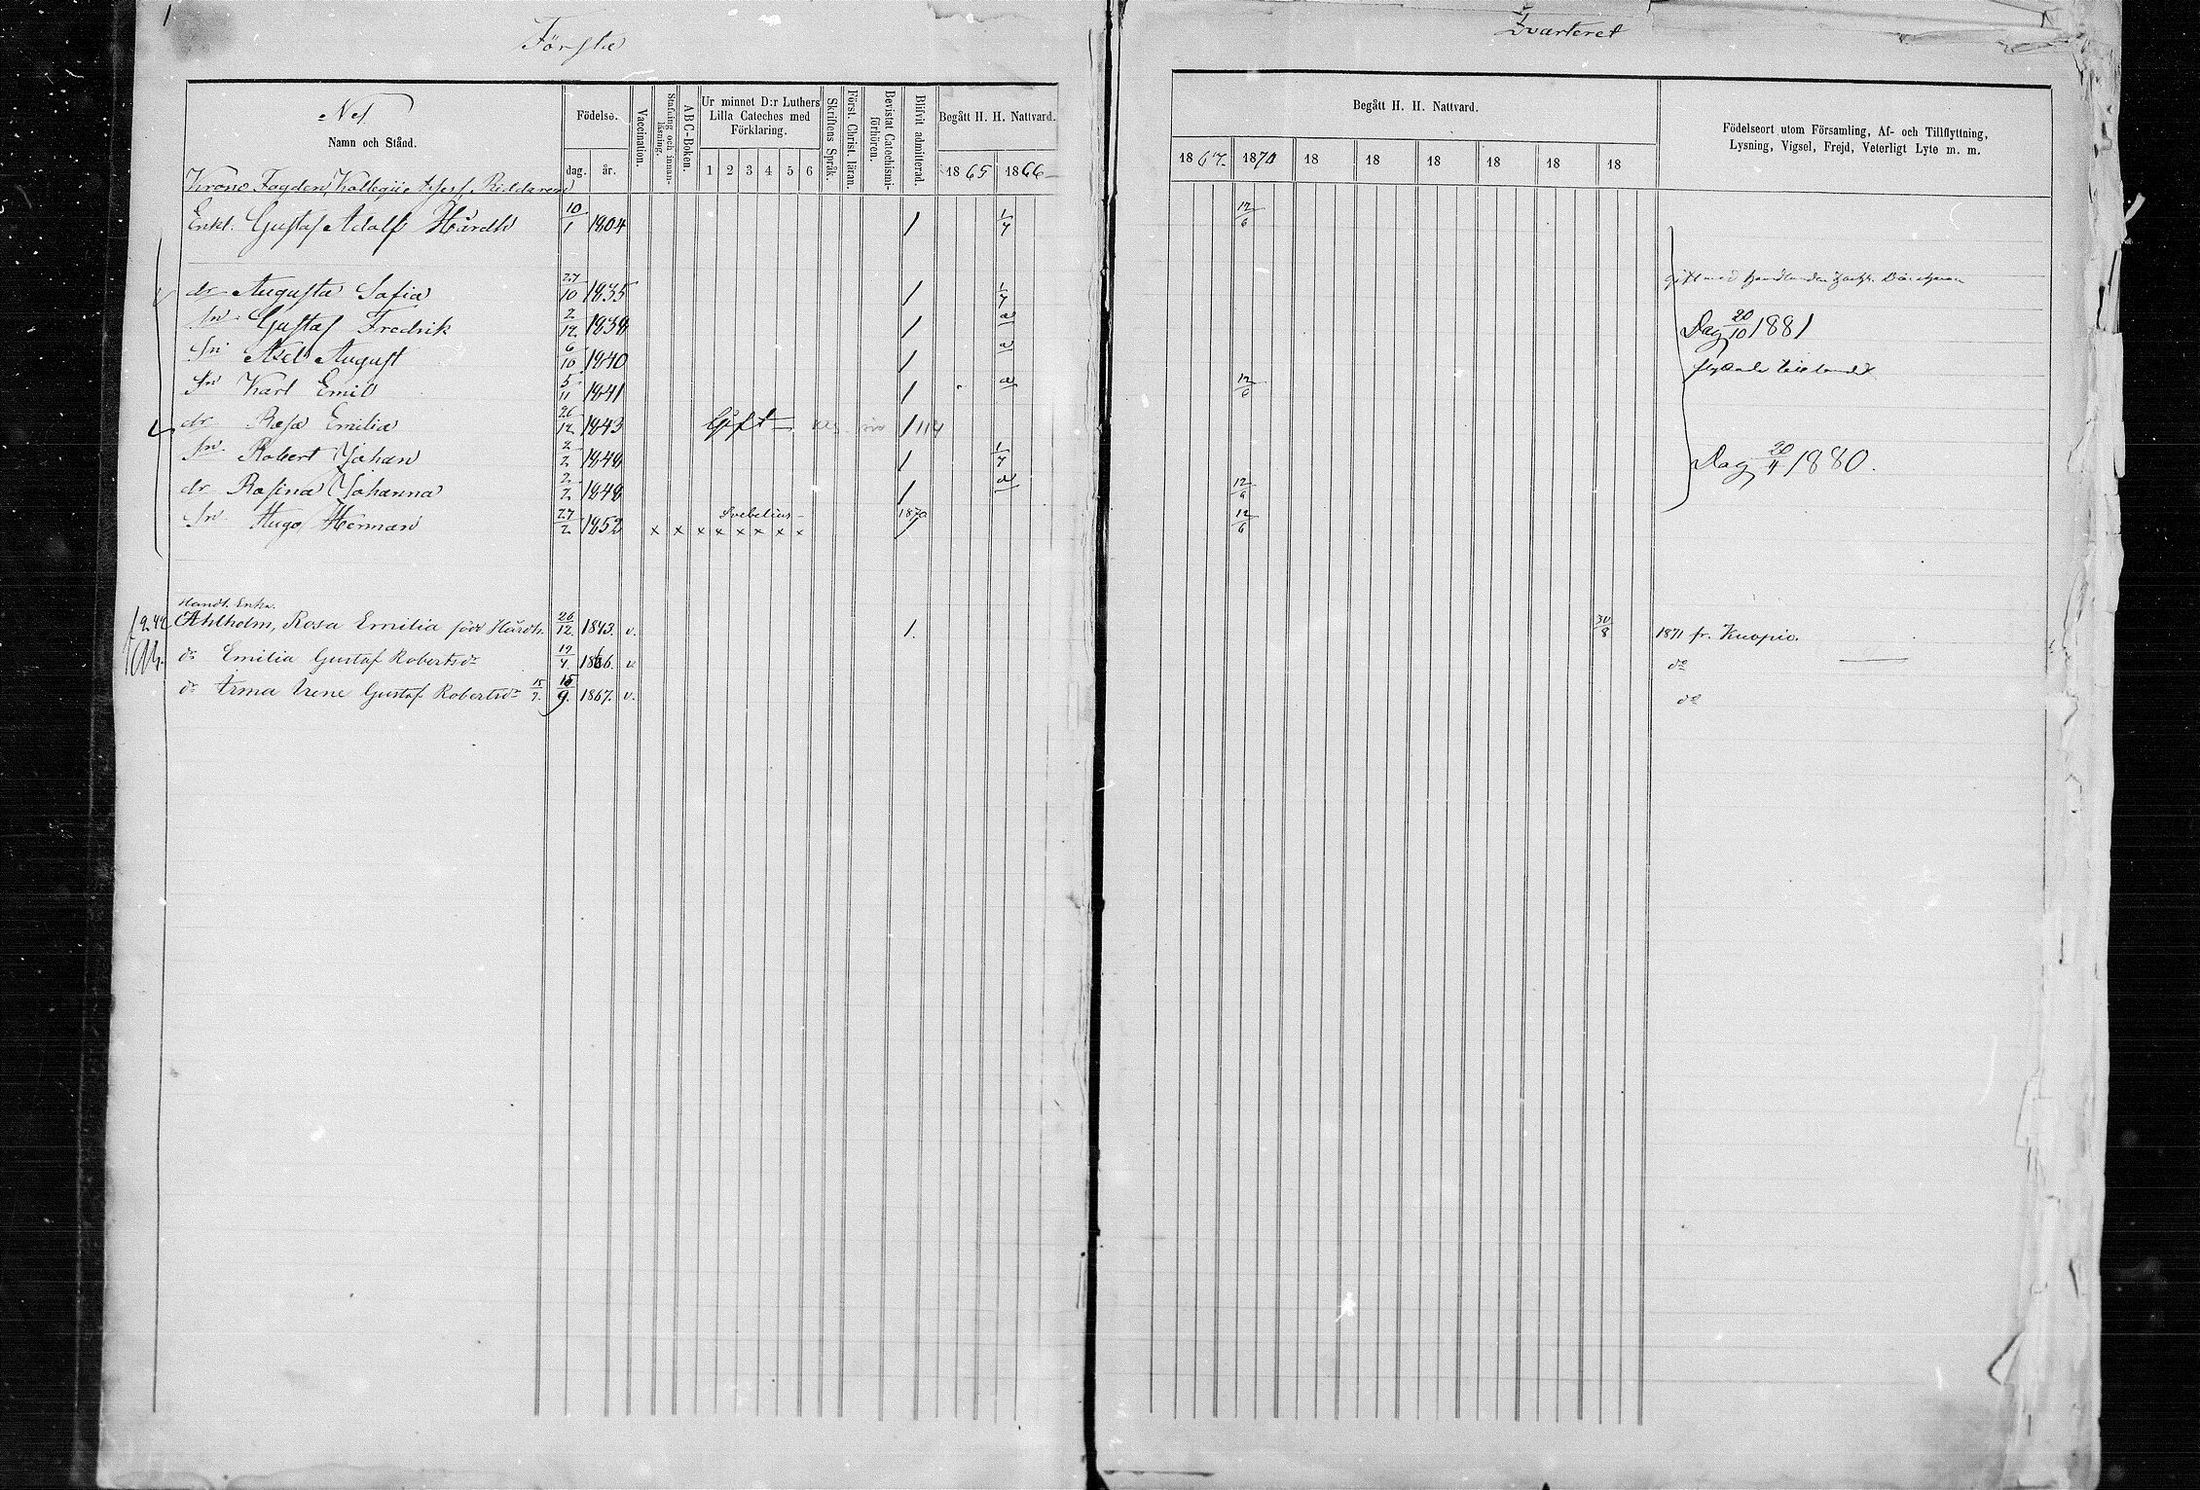 1
Första
Qvarteret
No 1
Namn och Stånd.
Födelse.
dag. år.
Vaccination.
Stafning och innanläsning.
ABC-Boken.
Ur minnet D:r Luthers Lilla Cateches med Förklaring.
1 2 3 4 5 6
Skriftens Språk.
Först. Christ. läran.
Bevistat Catechismiförhören.
Blifvit admitterad.
Begått H. H. Nattvard.
1865 1866
Begått H. H. Nattvard.
1867. 1870 18 18 18 18 18 18
Födelseort utom Församling, Af- och Tillflyttning,
Lysning, Vigsel, Frejd, Veterligt Lyte m. m.
Krono Fogden, Kollegii Assess. Riddaren
Enkl. Gustaf Adolf Hårdh 10/1 1804 1 1/7 12/6
dr Augusta Sofia 27/10 1835 1 1/7 gift med Handlanden
sn Gustaf Fredrik 2/12 1838 1 a Dag 20/10 1881
sn Axel August 6/10 1840 1 a
sn Karl Emil 5/11 1841 1 a 12/6
dr Rosa Emilia 26/12 1843 Gift 1
sn Robert Johan 2/2 1848 1 1/7 Dag 20/4 1880.
dr Rosina Johanna 2/2 1848 1 a 12/6
sn Hugo Herman 27/2 1852 x x x x x x x x Svebelius 1870 12/6
Handl. Enka.
Ahlholm, Rosa Emilia född Hårdh. 26/12. 1843. v. 1. 30/8 1871 fr. Kuopio.
dr Emilia Gustaf Robertsdr 19/4. 1866. v. do
dr Irma Irene Gustaf Robertsdr 15/9. 15/9. 1867. v. do